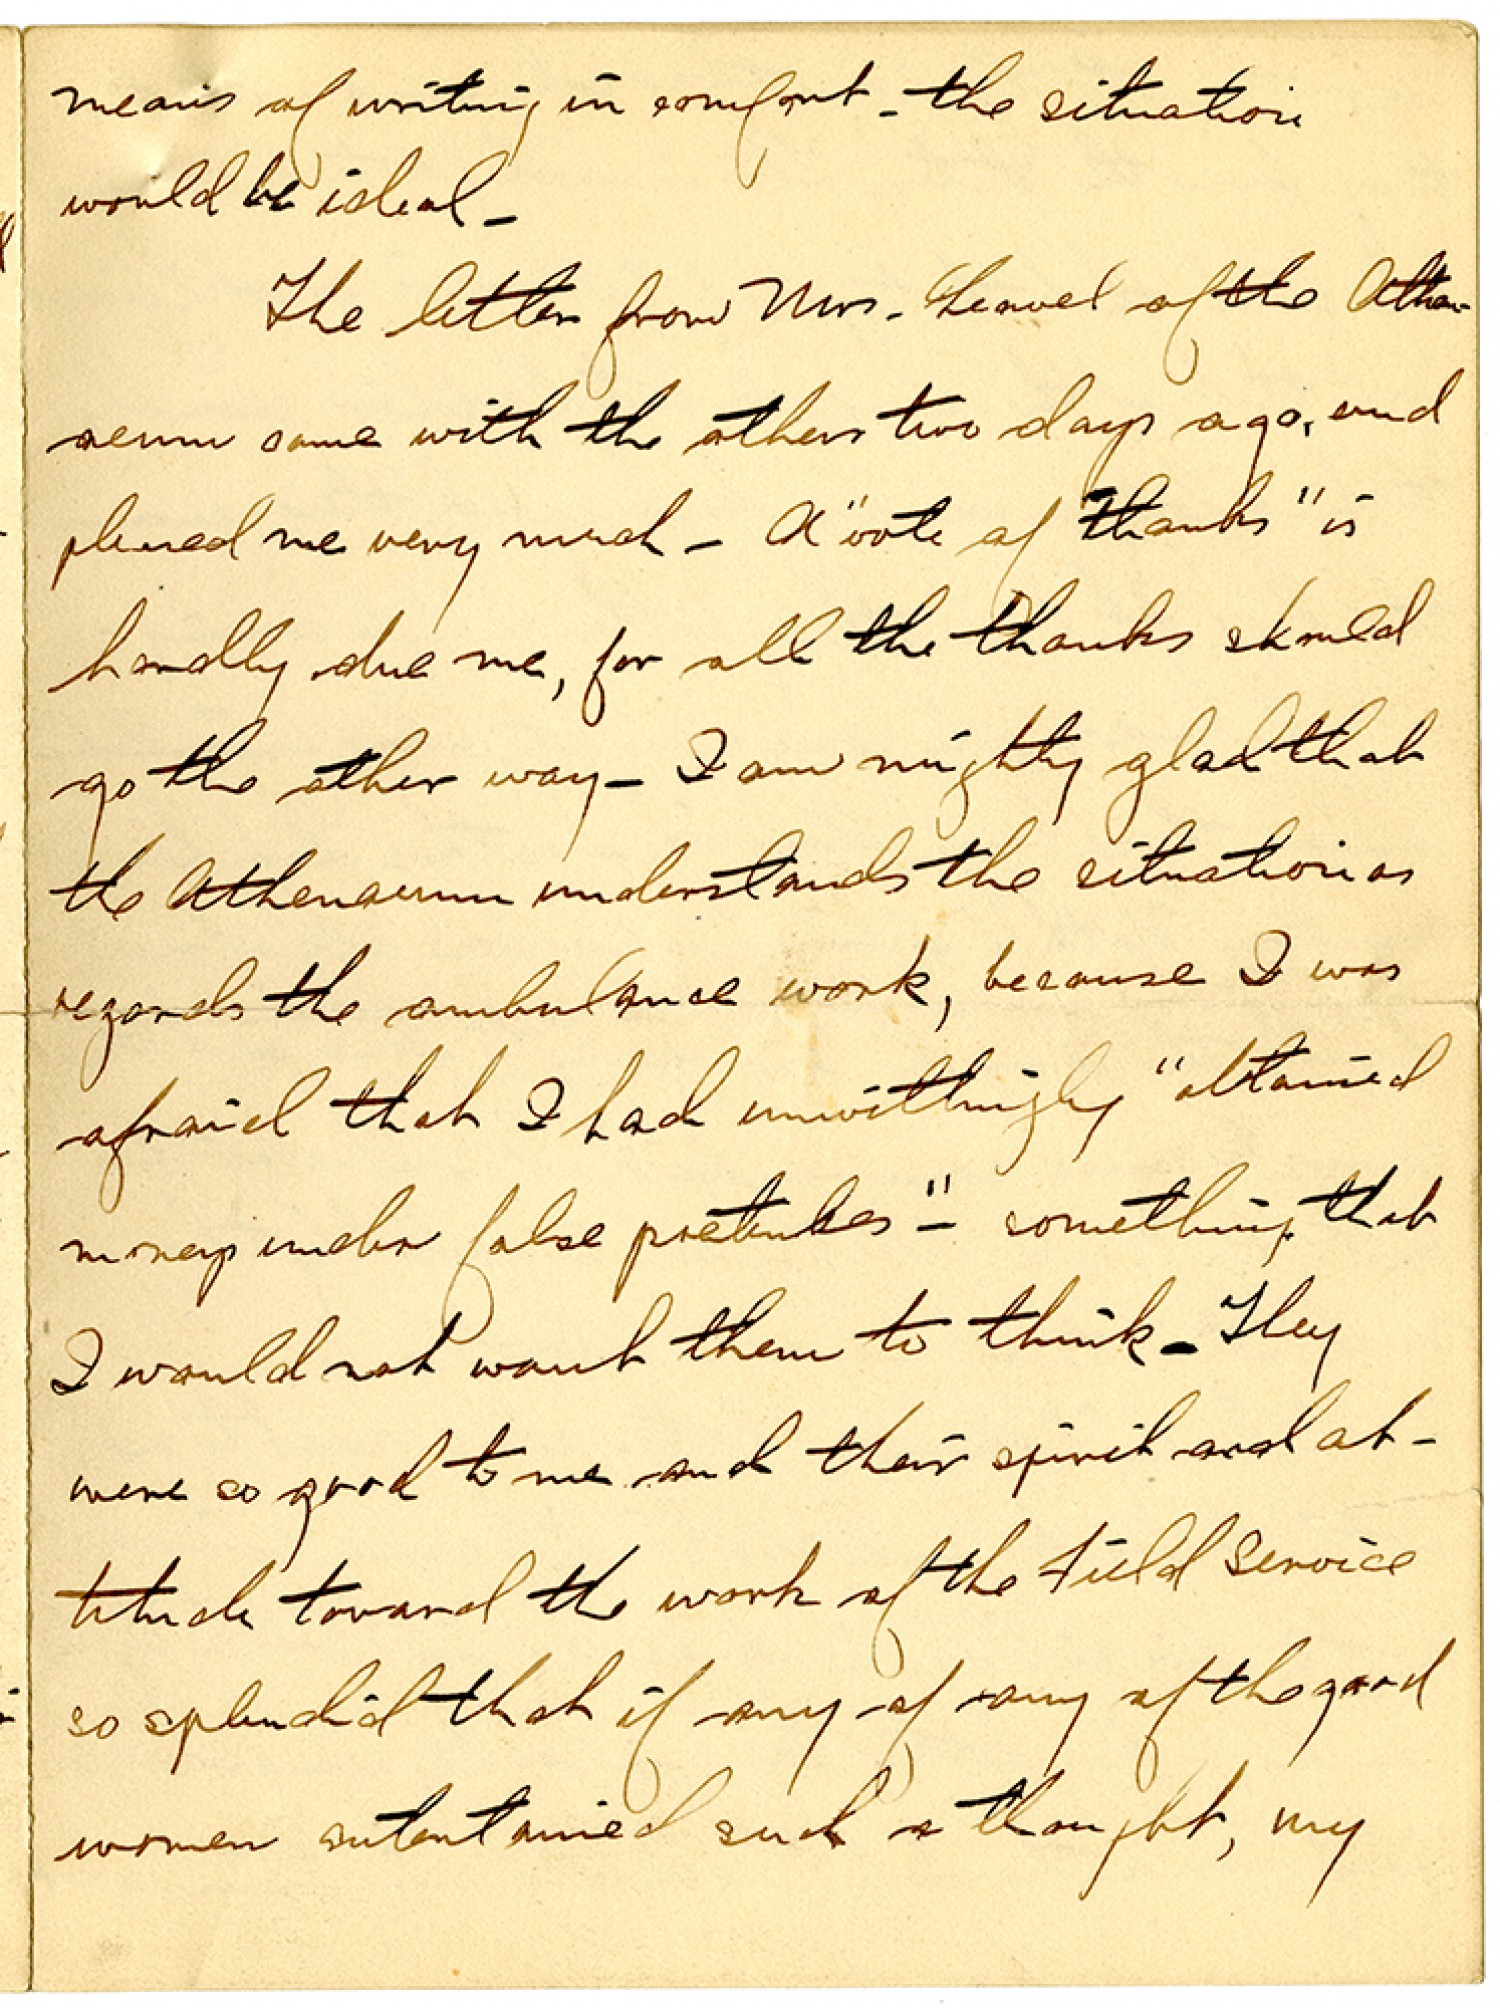 means of writing in comfort - the situation
would be ideal -
The letter from Mrs. of the Athen-
aeum came with the others two days ago, and
pleased me very much - A "vote of thanks" is
hardly due me, for all the thanks should
go the other way - I am mighty glad that
the Athenaeum understands the situation as
regards the ambulance work, because I was
afraid that I had unwittingly "obtained
money under false pretenses" - something that
I would not want them to think - They
were so good to me and their spirit and at-
titude toward the work of the Field Service
so splendid that if any of any of the good
women entertained such a thought, my